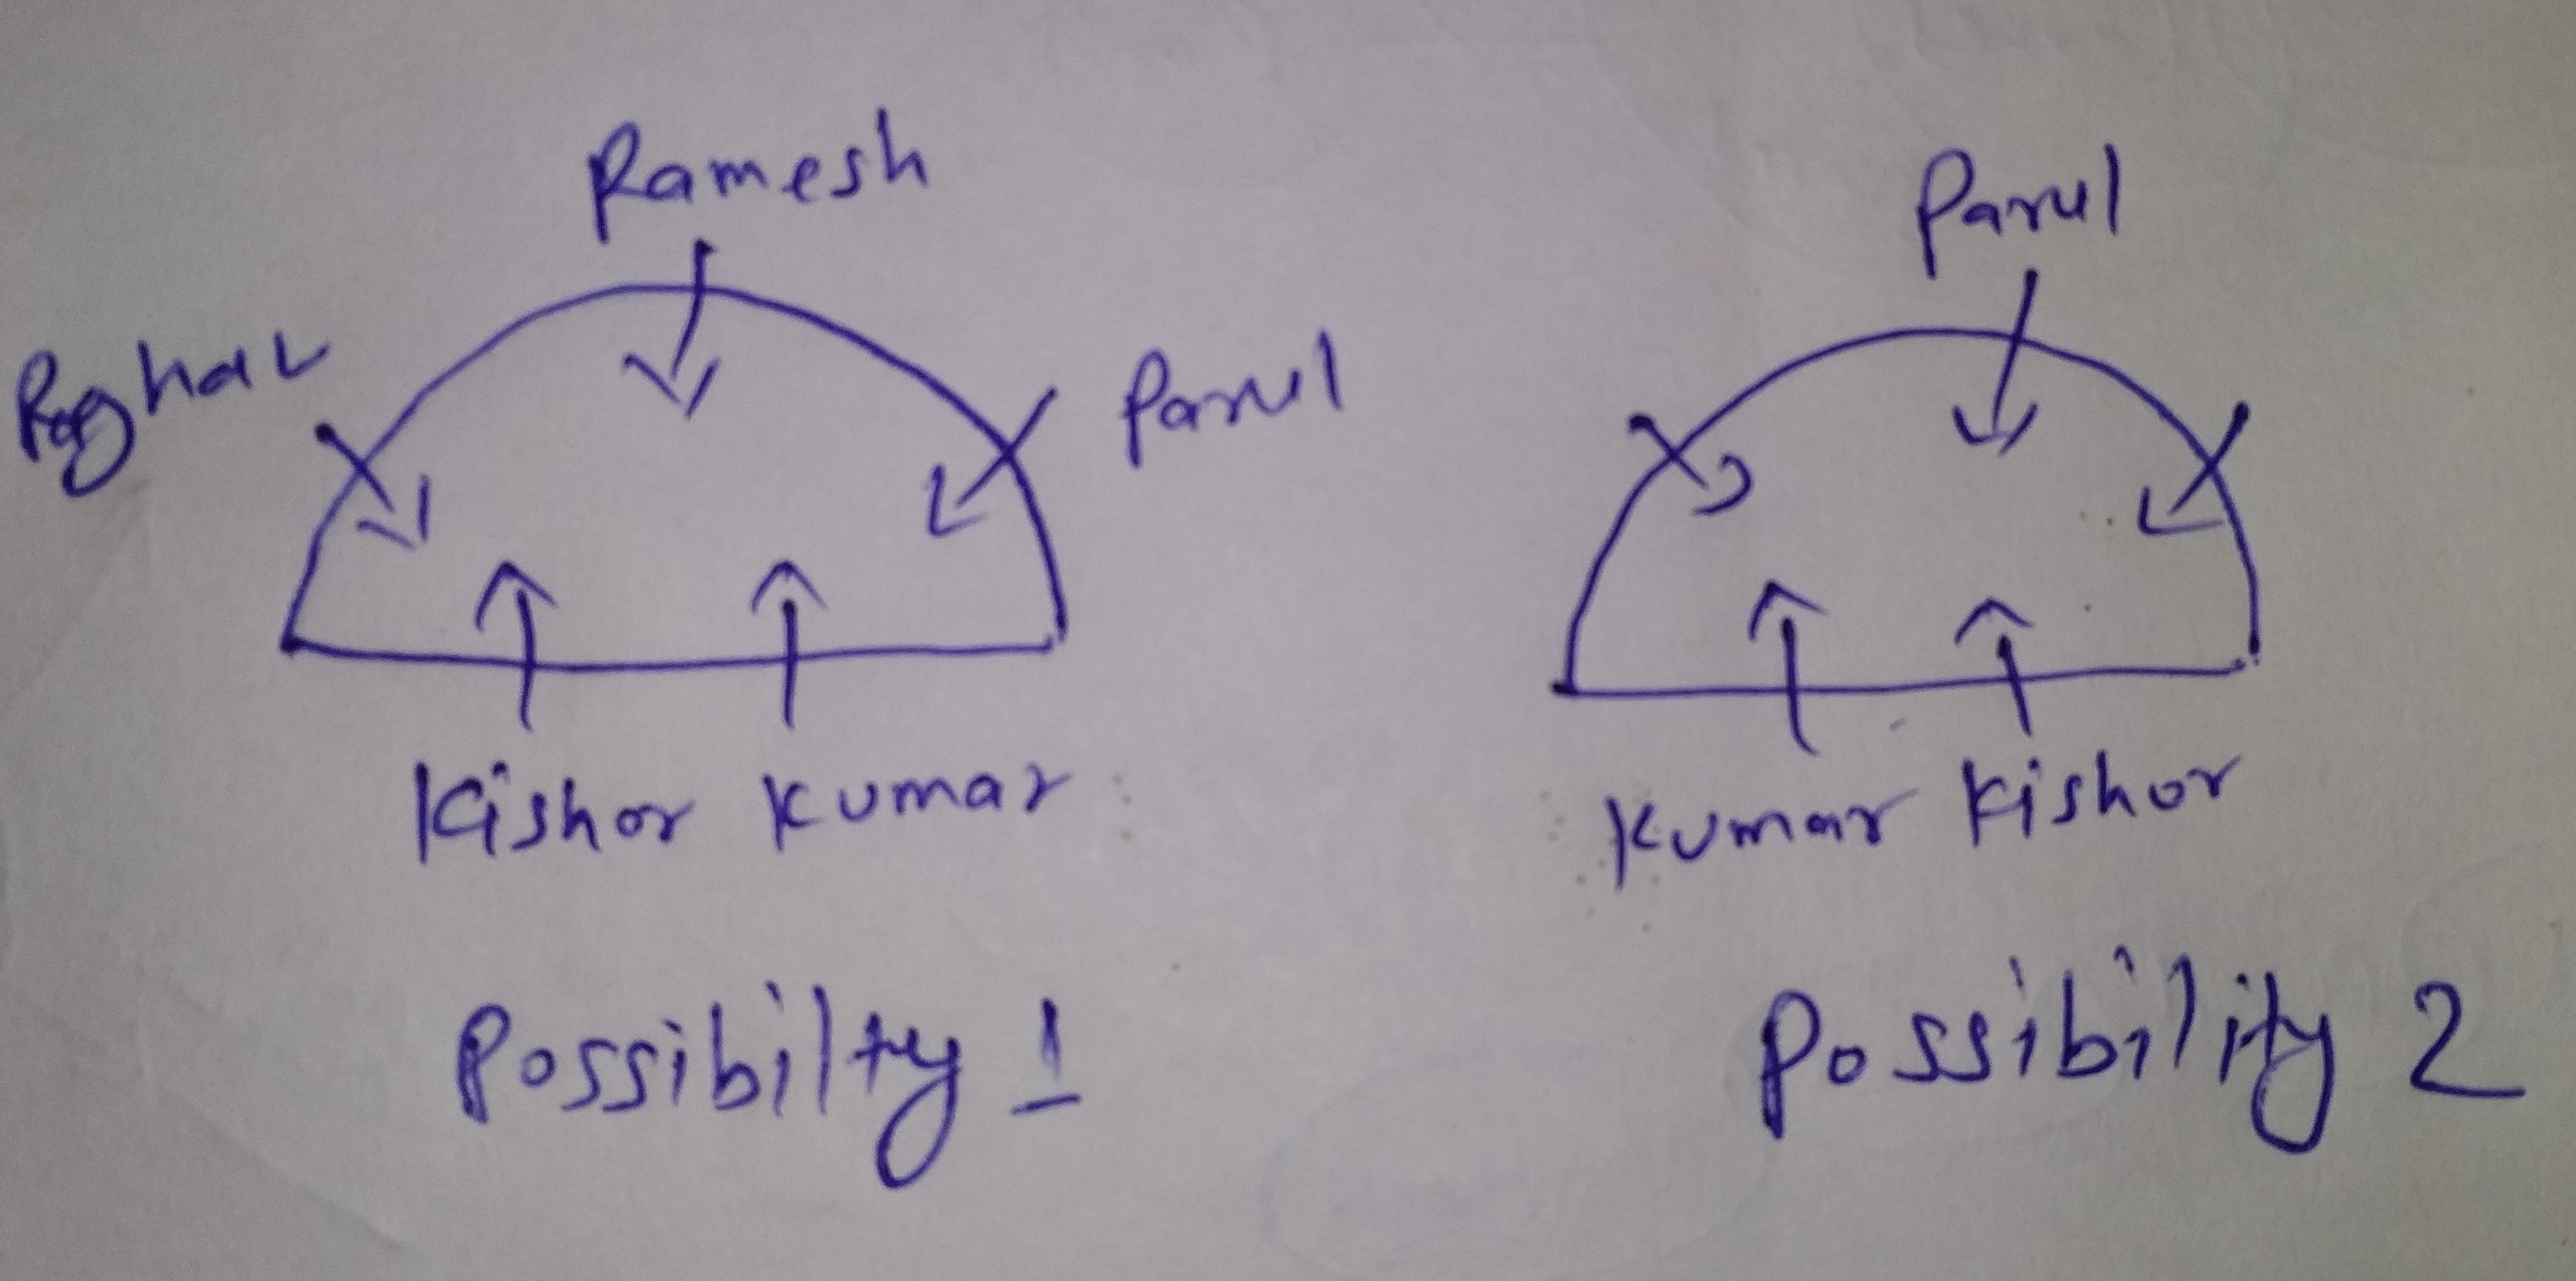 Ramesh
Parul
Raghav
Parul
Kishor Kumar
Kumar Kishor
Possibilty 1
Possibility 2